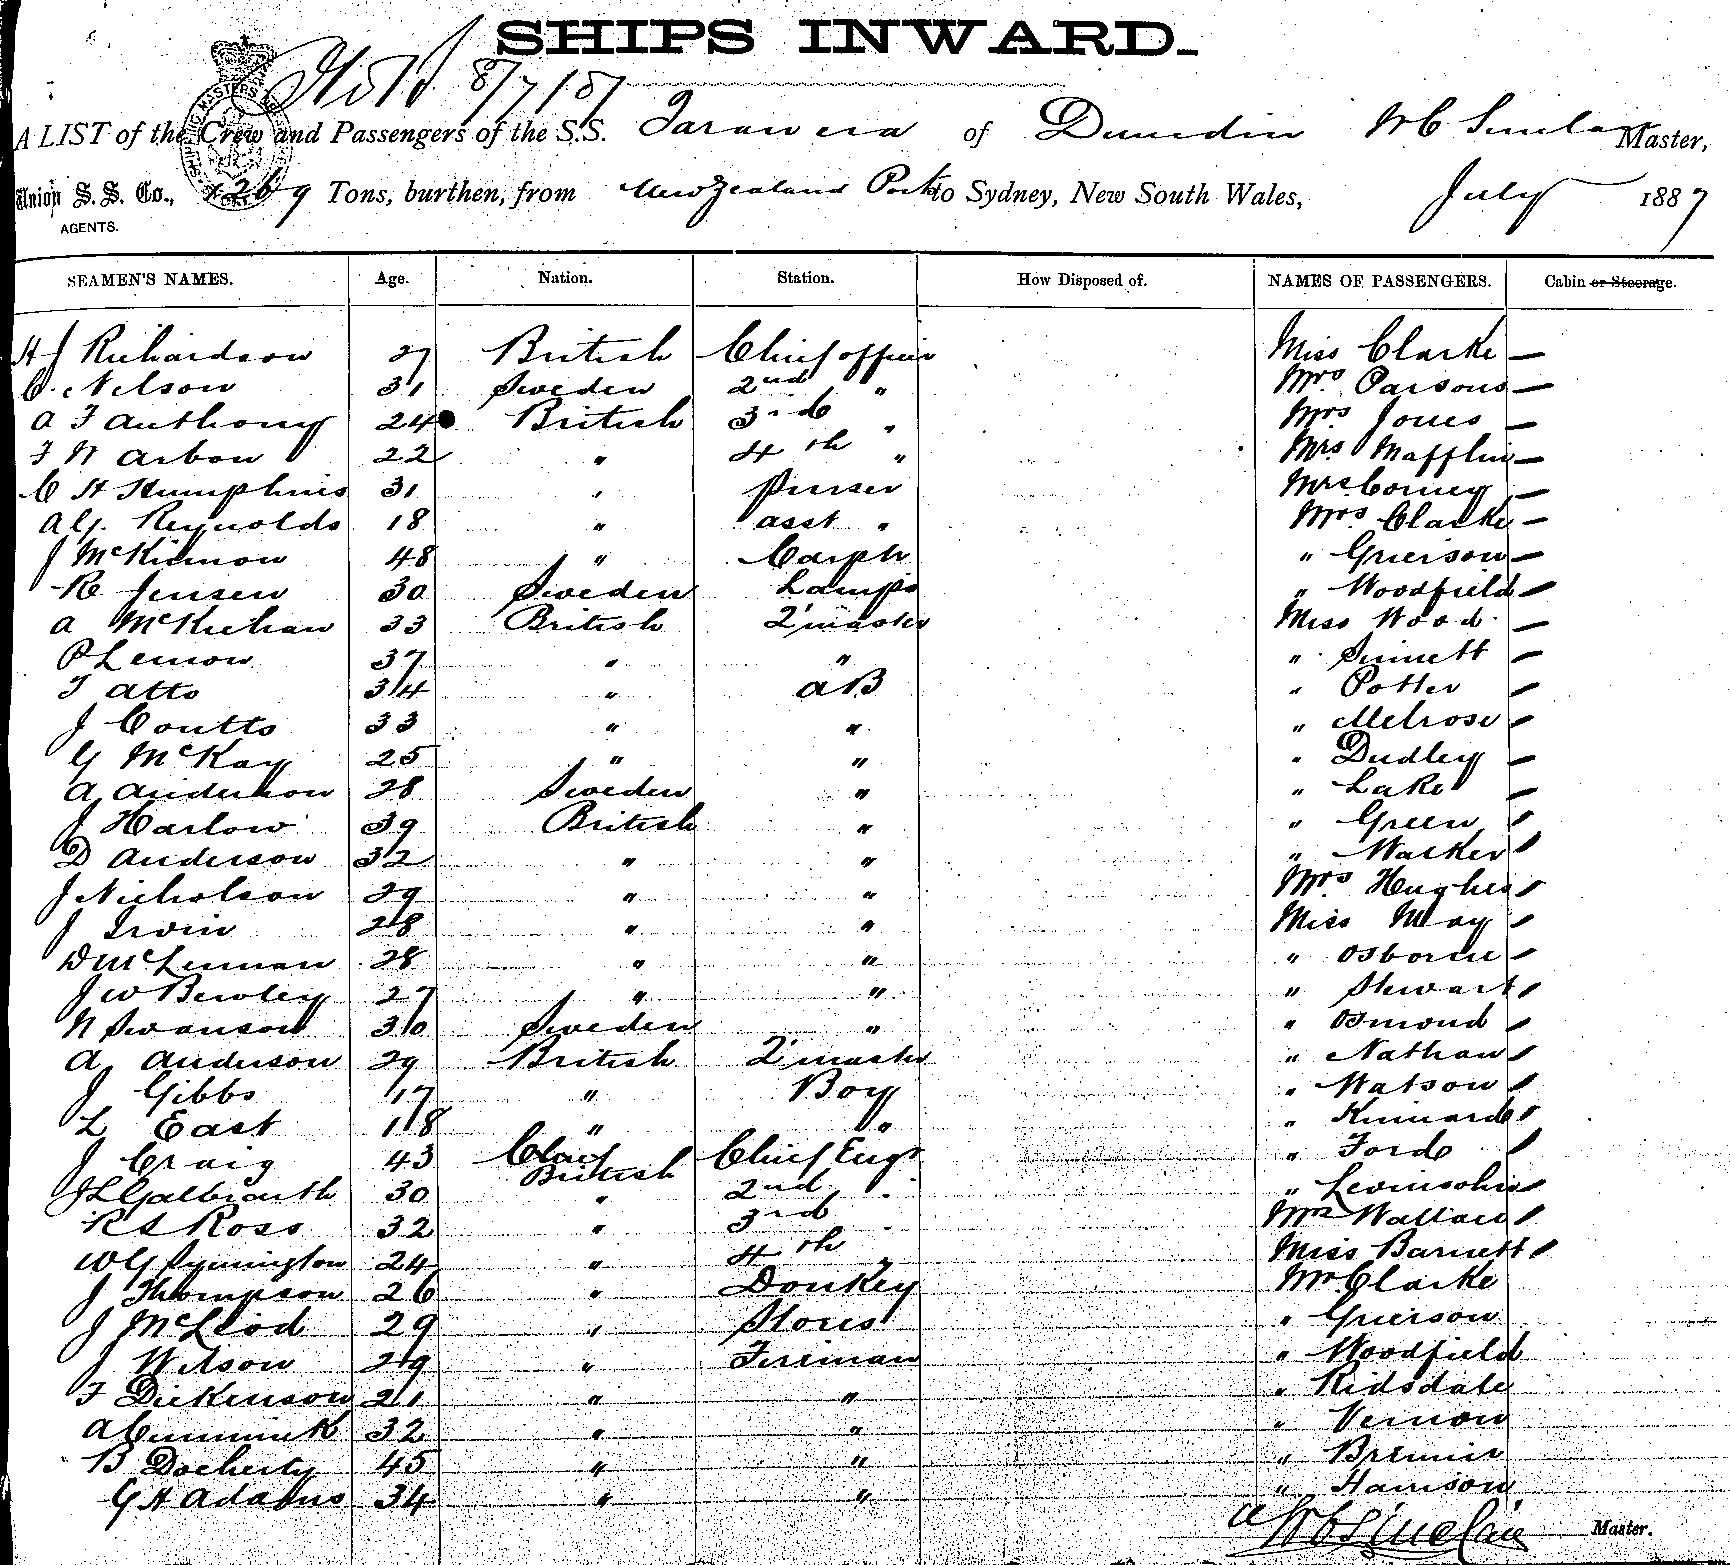 SHIPS INWARD.
8/7/87
A LIST of the Crew and Passengers of the S.S. Tarawera of Dunedin W C Sinclair Master,
Union S. S. Co., 1269 Tons, burthen, from New Zealand Ports to Sydney, New South Wales, July 1887
AGENTS.
SEAMEN'S NAMES. Age. Nation. Station. How Disposed of. NAMES OF PASSENGERS. Cabin or Steerage.
H J Richardson 27 British Chief officer Miss Clarke —
C. Nelson 31 Sweden 2nd " Mrs Parsons —
A F Anthony 24 British 3rd " Mrs Jones —
F W Arbow 22 " 4th " Mrs Mafflin —
C H Humphries 31 " Purser Mrs Comey —
A G. Reynolds 18 " asst " Mrs Clarke —
J McKinnon 48 " Carptr " Grierson —
R Jensen 30 Sweden Lamps " Woodfield
A McKiehan 33 British Q'master Miss Wood —
P Lemon 37 " " " Sinnett
T Atto 34 " AB " Potter
J Coutts 33 " " " Melrose
G McKay 25 " " " Dudley
A Anderson 28 Sweden " " Lake
J Harlow 39 British " " Green
D Anderson 32 " " "
J Nicholson 29 " " Mrs Hughes
J Irvin 28 " " Miss May
D McLennan 28 " " " Osborne
J W Bewley 27 " " " Stewart
N Swanson 30 Sweden " " Osmond
A Anderson 29 British Q'master " Nathan
J Gibbs 17 " Boy " Watson
L East 18 " " " Kinnard
J Craig 43 British Chief Engr " Ford
J L Galbraith 30 " 2nd " " Levinsohn
R S Ross 32 " 3rd " Mrs Wallace
W G Symington 24 " 4th " Miss Barnett
J Thompson 26 " Donkey Mr Clarke
J McLeod 29 " Stores " Grierson
J Wilson 29 " Fireman " Woodfield
F Dickinson 21 " " " Ridsdale
A Cuminick 32 " " " Vernon
B Docherty 45 " " " Bremner
G H Adams 34 " " " Harrison
W C Sinclair Master.